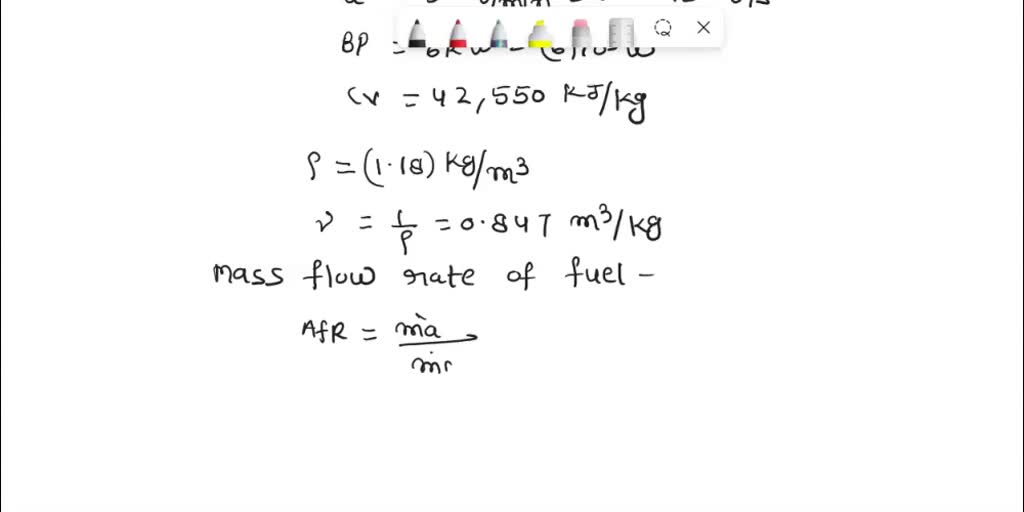 BP = 6KW = (6)10³ W
CV = 42,550 KJ/kg
ρ = (1.18) kg/m³
ν = 1/ρ = 0.847 m³/kg
mass flow rate of fuel -
AfR = ṁa/ṁ